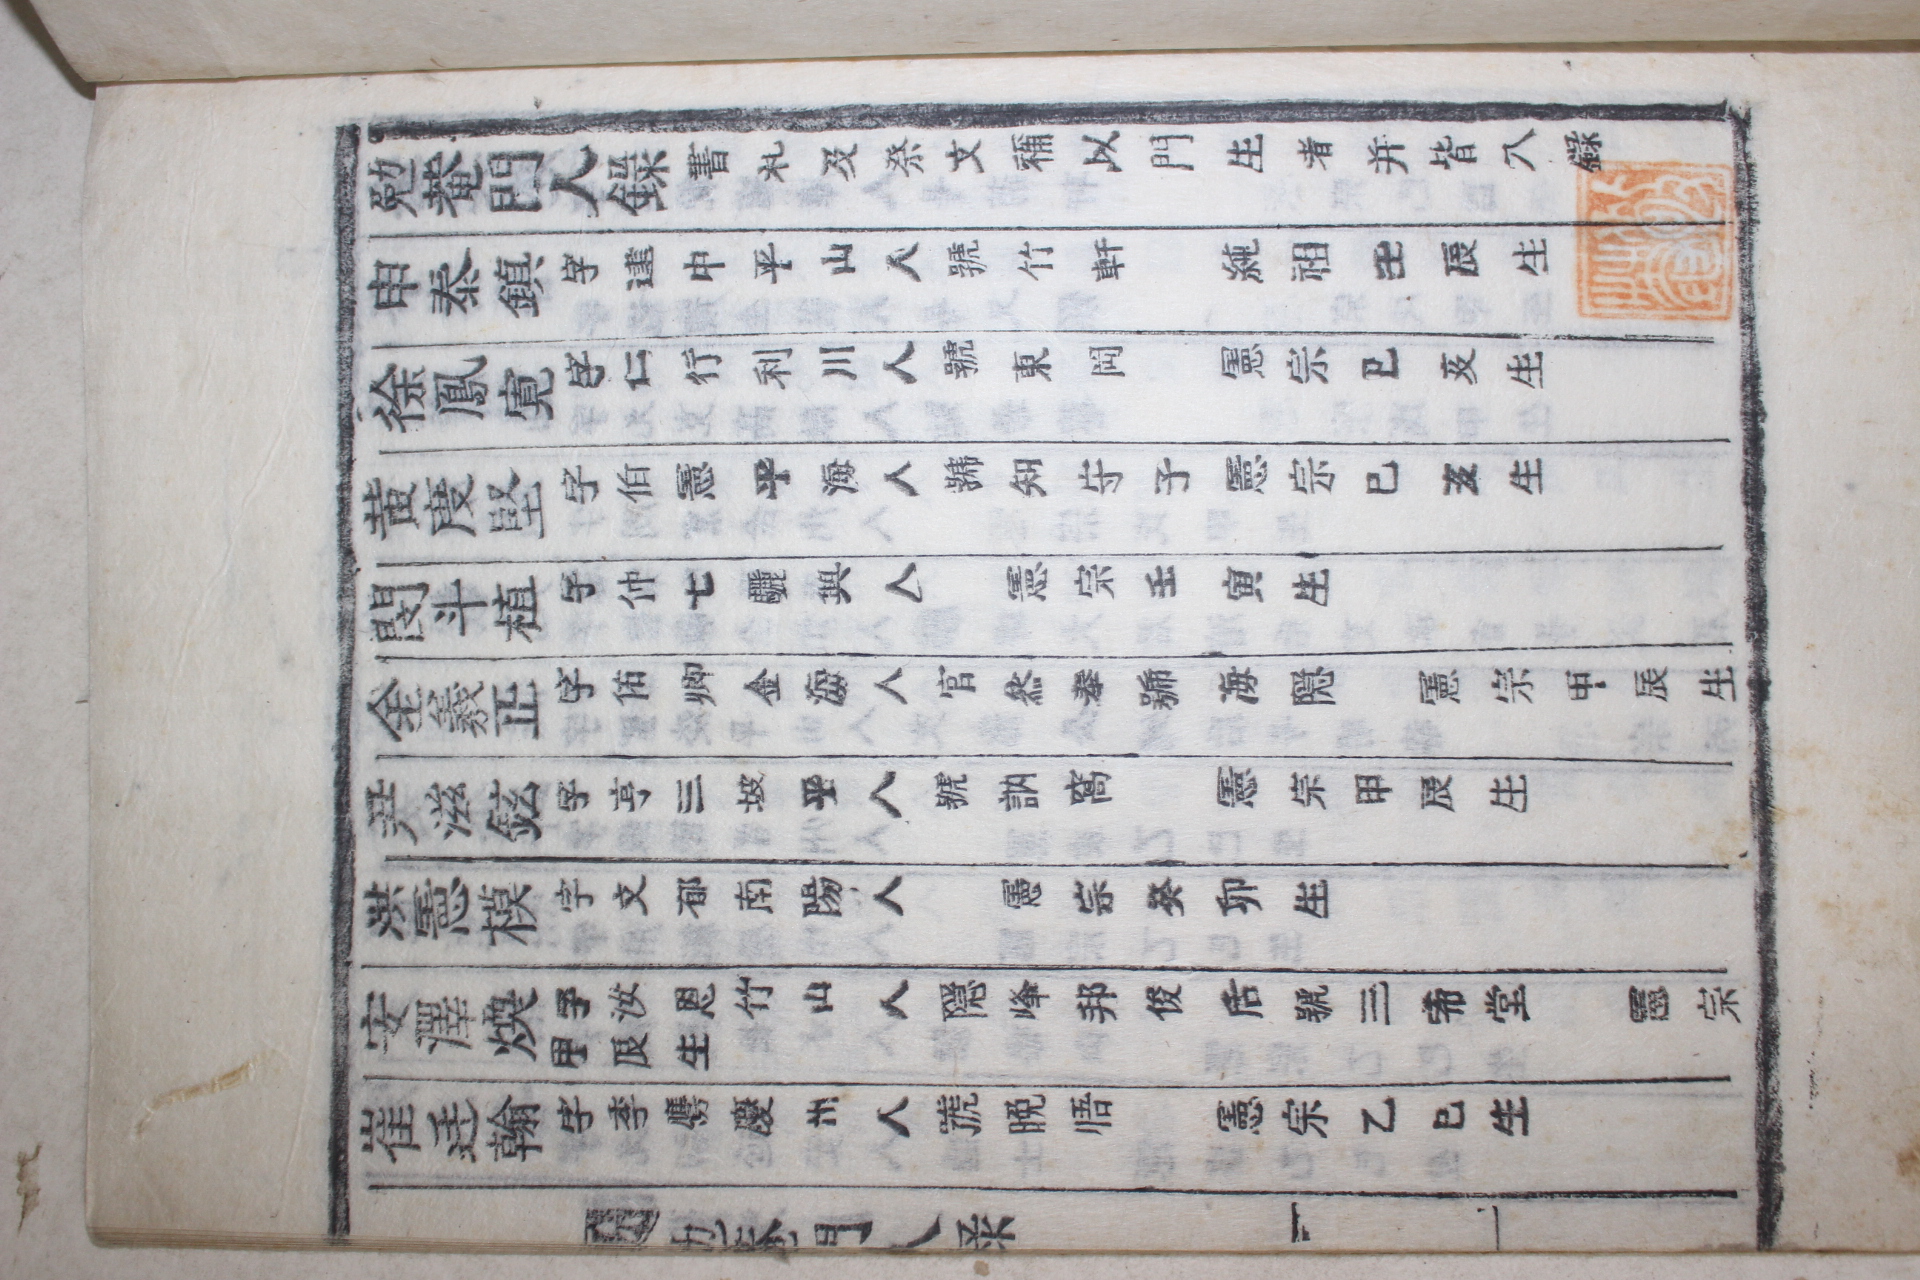 勉菴門人錄 書札及祭文稱以門生者并皆入錄
申泰鎮 字逮中平山人號竹軒 純祖壬辰生
徐鳳寬 字仁行利川人號東岡 憲宗己亥生
黃度堅 字伯憲平海人號知守子憲宗己亥生
閔斗植 字仲七驪興人 憲宗壬寅生
金義正 字佑卿金海人官叅奉號海隱 憲宗甲辰生
尹滋鉉 字亨三坡平人號訥窩 憲宗甲辰生
洪憲模 字文郁南陽人 憲宗癸卯生
安澤煥 字汝恩竹山人隱峰邦俊后號三希堂 憲宗
甲辰生
崔廷翰 字季慶州人號晚悟 憲宗乙巳生
門人